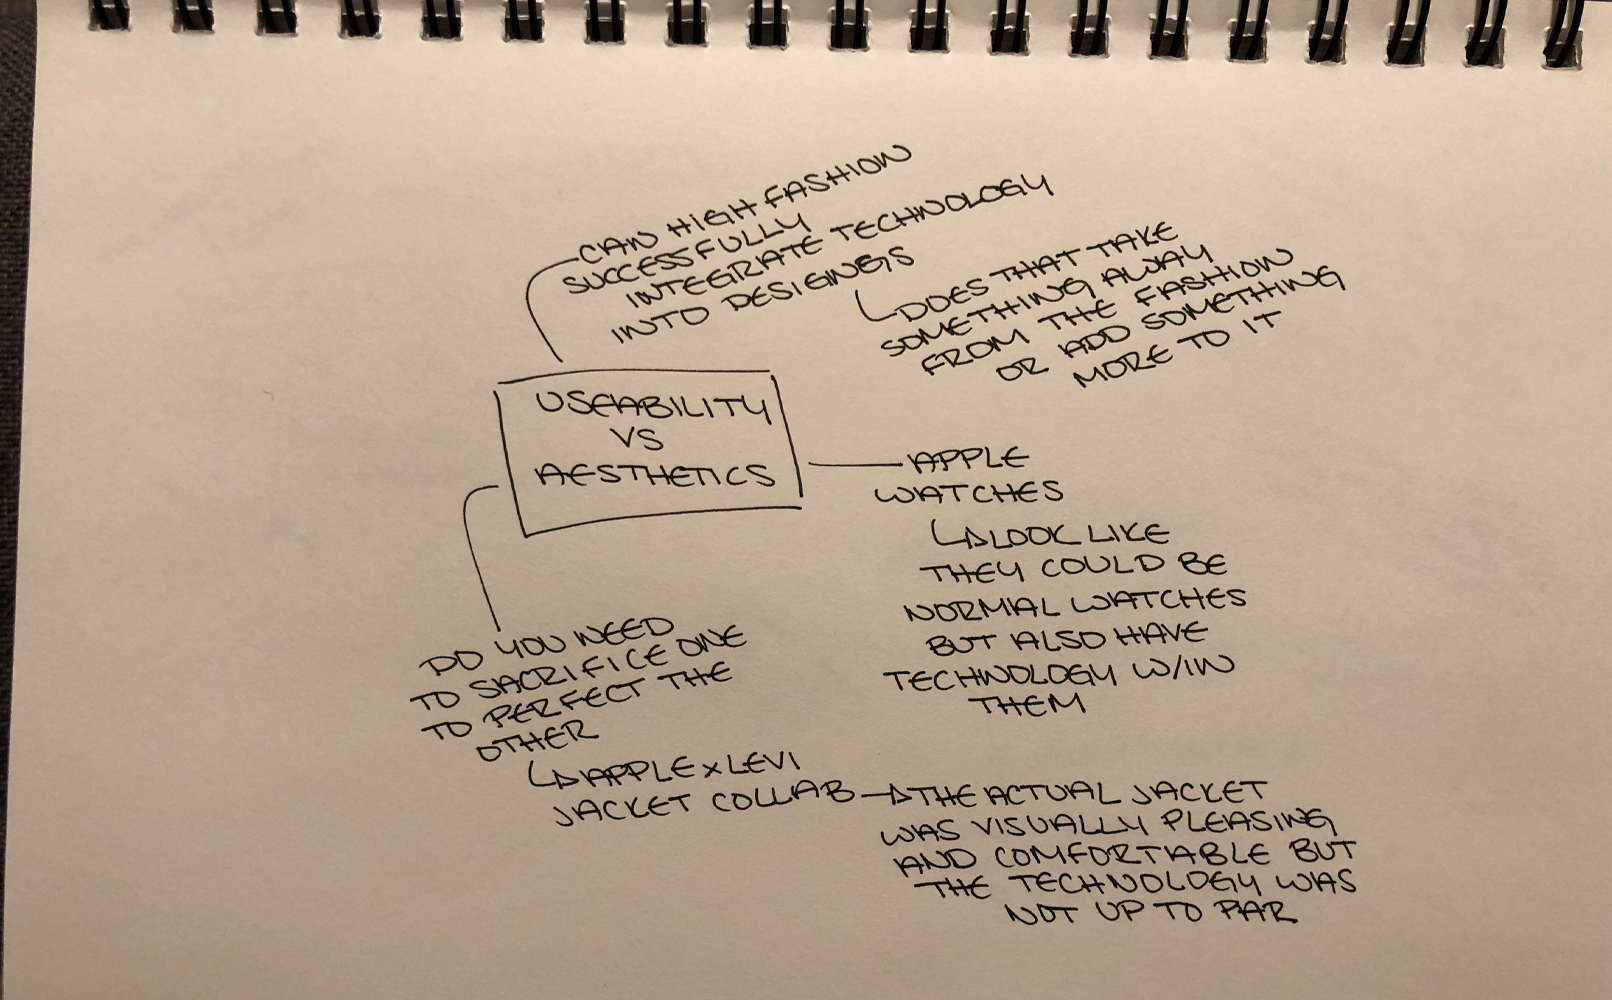 CAN HIGH FASHION
SUCCESSFULLY
INTEGRATE TECHNOLOGY
INTO DESIGINGS
DOES THAT TAKE
SOMETHING AWAY
FROM THE FASHION
OR ADD SOMETHING
MORE TO IT
USEABILITY
VS
AESTHETICS
APPLE
WATCHES
LOOK LIKE
THEY COULD BE
NORMAL WATCHES
BUT ALSO HAVE
TECHNOLOGY W/IN
THEM
DO YOU NEED
TO SACRIFICE ONE
TO PERFECT THE
OTHER
APPLE x LEVI
JACKET COLLAB
THE ACTUAL JACKET
WAS VISUALLY PLEASING
AND COMFORTABLE BUT
THE TECHNOLOGY WAS
NOT UP TO PAR